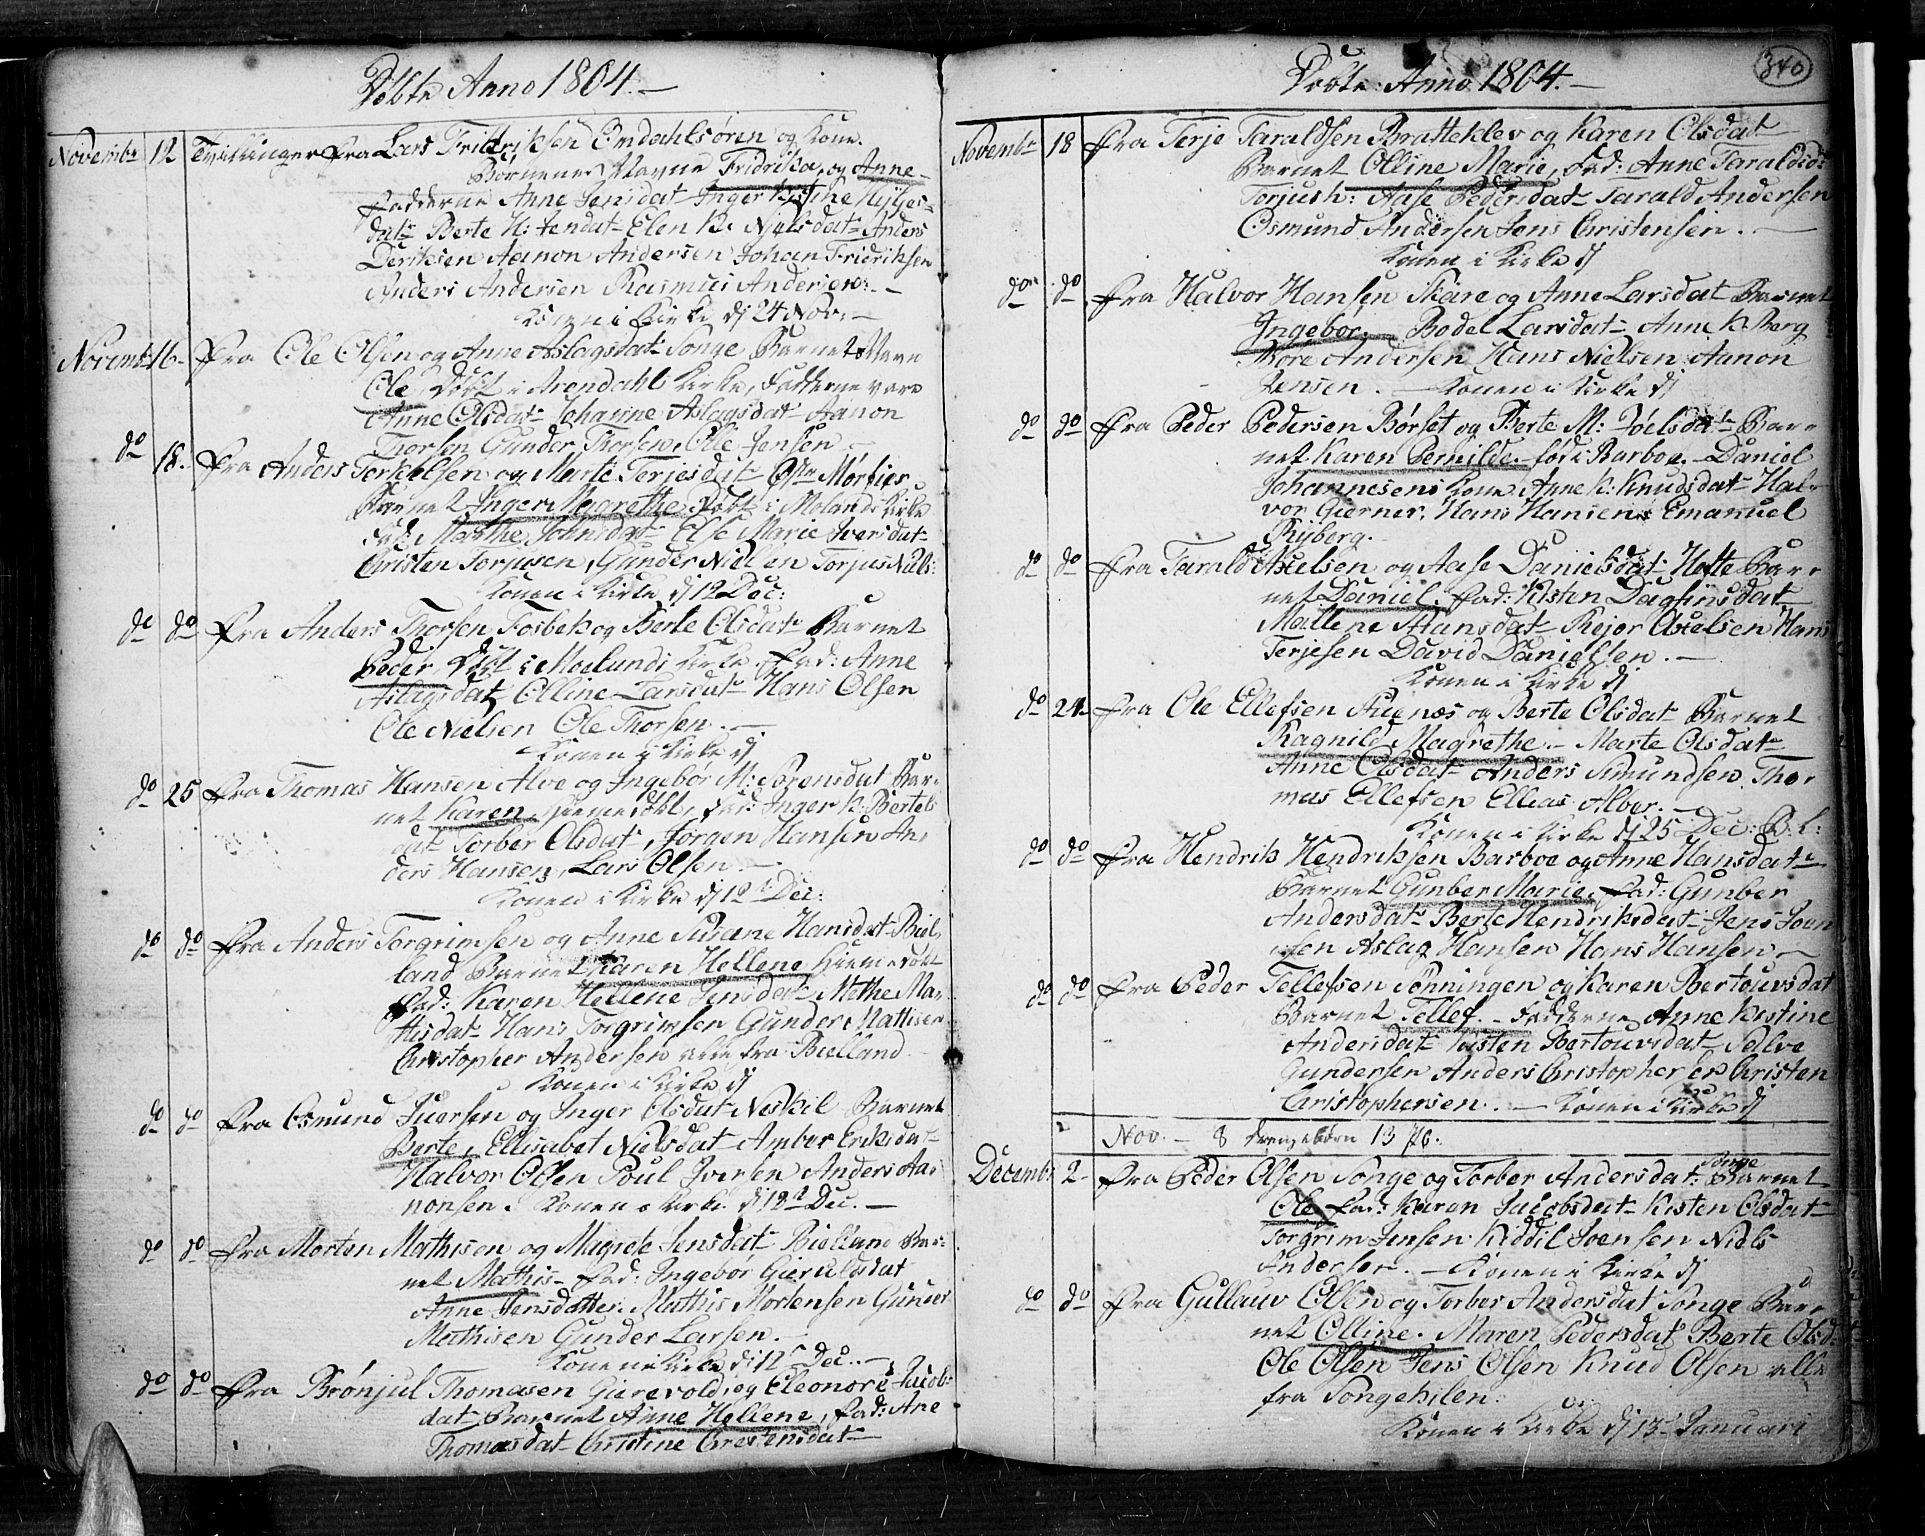 Döbte Anno 1804.
Novembr 12 Tvillinger fra Lars Fridriksen Omdahlsøren og Kone.
Børnenes Navne Fridrika, og Anne
Fadderne Anne Jensdat Inger Kistine
dat Berte H: Jensdat Elen K. Njelsdat Anders
Deriksen Aanon Andersen Johan Fridriksen
Anders Andersen Rasmus Andersen.
Konen i Kirke dj 24 Nov.
Novemb 16 fra Ole Olsen og Anne Aslagsdat Songe Barnets Navn
Ole, Döbt i Arendahls Kirke, Fadderne vare
Anne Olsdat Johanne Aslagsdat Aanon
Thorsen Gunder Thorsen, Ole Jensen
do 18. fra Anders Torkelsen og Marte Terjesdat Østr Mørfiær
Barnet Inger Margrethe Döbt i Molands Kirke
Fad: Marthe Johnsdat Else Marie Iversdat
Christen Torjusen, Gunder Nielsen Torjus Niels:
Konen i Kirke dj 12 Dec:
do do fra Anders Thorsen Fosbek og Berte Olsdat Barnet
Peder Döbt i Moelands Kirke. Fad: Anne
Aslagsdat Olline Larsdat Hans Olsen
Ole Nielsen Ole Thorsen.
Konen i Kirke dj
do 25 fra Thomas Hansen Alve og Ingebør M: Sørensdat Bar-
net Karen, hiemedöbt, Fad: Inger K: Bertels
dat Torber Olsdat, Jørgen Hansen An-
ders Hansen, Lars Olsen.
Konen i Kirke dj 12 Dec:
do do fra Anders Torgrimsen og Anne Susane Hansdat Biel
land Barnet Karen Hellene hiemedöbt
Fad: Karen Hellene Jensdat Methe Ma-
thisdat Hans Torgrimsen Gunder Mathisen
Christopher Andersen alle fra Bielland
Konen i Kirke dj
do do fra Osmund Iversen og Inger Olsdat Neskil Barnet
Berte, Ellisabet Nielsdat Amber Eriksdat
Halvor Olsen Poul Iversen Anders Aa-
nonsen. Konen i Kirke dj 12 Dec.
do do fra Morten Mathisen og Magrete Jensdat Bielland Bar-
net Mathis Fad: Ingebor Gieruldsdat
Anne Jensdatter. Mathis Mortensen Gunder
Mathisen Gunder Larsen.
Konen i Kirke dj 12 Dec.
do do fra Brønjul Thomasen Gierevold, og Eleonore Jacobs
dat Barnet Anne Hellene, Fad: Ane
Thomasdat Christine Crestensdat
340
Döbte Anno 1804.
Novembr 18 fra Terje Taraldsen Bratteklev og Karen Olsdat
Barnet Olline Marie, Fad: Anne Taraldsd:
Torjush: Aase Pedersdat Tarald Andersen
Osmund Andersen Jens Christensen.
Konen i Kirke dj
do do fra Halvor Hansen Skare og Anne Larsdat Barnet
Ingebor. Bodel Larsdat Anne K. Berg
Bore Andersen Hans Nielsen Aanon
Jensen. Konen i Kirke dj
do do fra Peder Pedersen Børset og Berte M: Joelsdat Bar-
net Karen Pernilde. föd i Barboe. Daniel
Johannesens Kone Anne K: Knudsdat Hal-
vor Gierner. Hans Hansen Emanuel
Ryberg.
do do fra Tarald Axelsen og Aase Danielsdat Hette Bar-
net Daniel. Fad: Kisten Dagfinsdat
Mallene Hansdat Rejer Axelsen Hans
Terjesen David Danielsen.
Konen i Kirke dj
do 24 fra Ole Ellefsen Stuenæs og Berte Olsdat Barnet
Ragnild Magrethe. Marte Olsdat
Anne Olsdat Anders Simundsen. Tho-
mas Ellefsen Ellias Alber.
Konen i Kirke dj 25 Dec: B. L:
do do fra Hendrik Hendriksen Barboe og Anne Hansdat
Barnet Gunber Marie, Fad: Gunber
Andersdat Berte Hendriksdat Jens Soen
sen Aslag Hansen Hans Hansen
do do fra Peder Tellefsen Sønningen og Karen Bertouvsdat
Barnet Tellef. Fadderne Anne Kistine
Andersdat Kisten Bertouvsdat Salve
Gundersen Anders Cristophersen Christen
Christophersen. Konen i Kirke dj
Nov. 8 drengebørn 13 pb.
Decemb: 2 fra Peder Olsen Songe og Torber Andersdat Songe Barnet
Ole Fad: Karen Jacobsdat Kisten Olsdat
Torgrim Jensen Kiddil Soensen Niels
Andersen. Konen i Kirke dj
do do fra Gullauv Olsen og Torber Andersdat Songe Bar-
net Olline. Maren Pedersdat Berte Olsd:
Ole Olsen Jens Olsen Knud Olsen alle
fra Songehilen.
Konen i Kirke dj 13 Januari